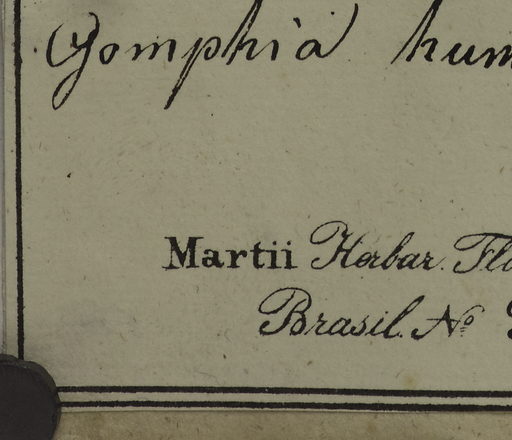 Gomphia hum
Martii Herbar. Flo
Brasil. No